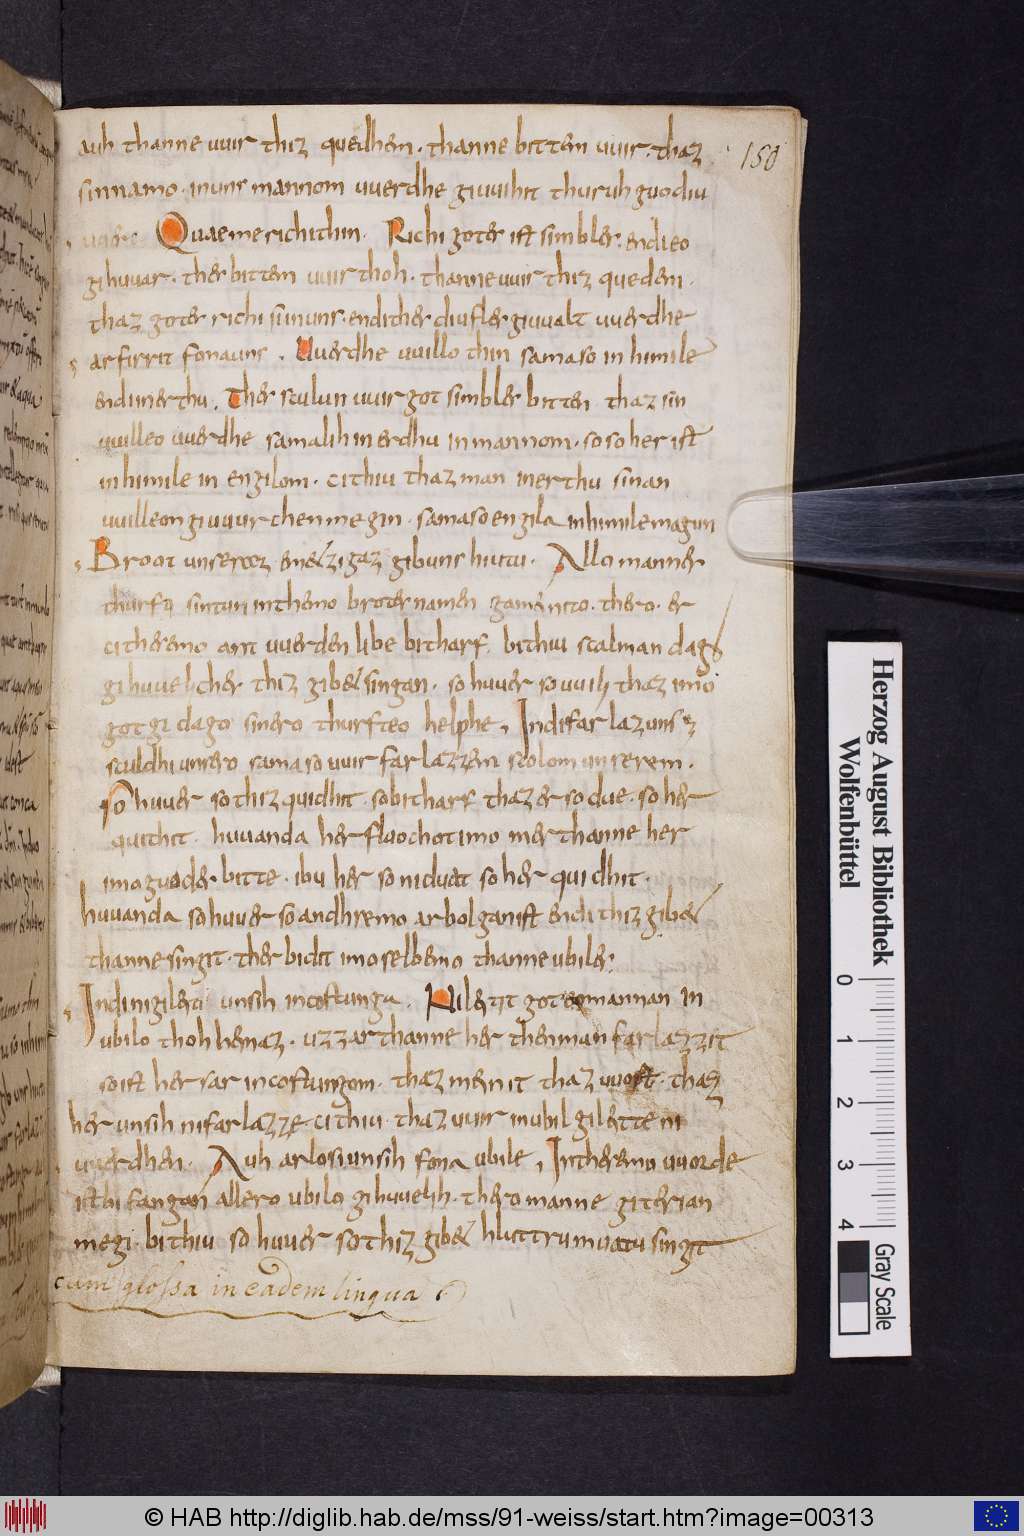 auh thanne uuir thiz quedhem · thanne bittem uuir · thaz
150
sin namo · in uns mannom uuerdhe giuuihit thuruh guodiu
uuerc Quaeme richi thin · Richi gotes ist simbles · endi eo
gihuuar · thes bittem uuir thoh · thanne uuir thiz quedem ·
thaz gotes richi si in uns · endi thes diufles giuualt uuerdhe
arfirrit fona uns · Uuerdhe uuillo thin sama so in himile
endi in erthu · Thes sculun uuir got simbles bitten thaz sin
uuilleo uuerdhe samalih in erdhu in mannom · so so her ist
in himile in engilom · ci thiu thaz man in erthu sinan
uuilleon giuuurchen megin · sama so engila in himile magun
Broot unseraz emezzigaz gib uns hiutu · Allo mannes
thurfti sintun in themo brotes namen gameinito · thero · er
ci theremo ant uuerden libe bitharf · bithiu scal man dago
gihuuelches thiz gibet singan · so huuer so uuili thaz imo
got gidago sinero thurfteo helphe · Indi farlaz uns
sculdhi unsero sama so uuir farlazzem scolom unserem ·
So huuer so thiz quidhit · so bitharf thaz er so due · so her
quithit · huuanda her fluochot imo mer thanne her
imo guodes bitte · ibu her so ni duat so her quidhit ·
huuanda so huuer so andhremo arbolgan ist endi thiz gibet
thanne singit · ther bidit imo selbemo thanne ubiles
Indi ni gileiti unsih in costunga · Ni leitit got eomannan in
ubilo thohheinaz · uzzar thanne her then man farlazzit
so ist her sar in costungom · thaz meinit thaz uuort · thaz
her unsih ni farlazze · ci thiu · thaz uuir in ubil gileitte ni
uuerdhen · Auh arlosi unsih fona ubile · In theremo uuorde
ist bifangan allero ubilo gihuuelih · thero manne giterian
megi · bithiu so huuer so thiz gibet hluttru muatu singit
cum glossa in eadem lingua
Herzog August Bibliothek
Wolfenbüttel
0 1 2 3 4
Gray Scale
© HAB http://diglib.hab.de/mss/91-weiss/start.htm?image=00313